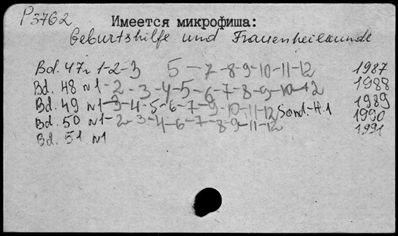 P3762
Имеется микрофиша:
Geburtshilfe und Frauenheilkunde
Bd. 47 n 1-2-3 5-7-8-9-10-11-12 1987
Bd. 48 n1-2-3-4-5-6-7-8-9-10-12 1988
Bd. 49 n1-3-4-5-6-7-9-10-11-12 Sond.-H.1 1989
Bd. 50 n1-2-3-4-6-7-8-9-11-12 1990
Bd. 51 n1 1991